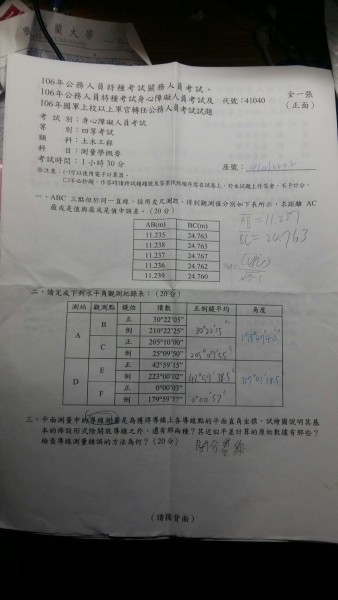 蘭大學
106年公務人員特種考試關務人員考試、
106年公務人員特種考試身心障礙人員考試及 代號:41040 全一張
106年國軍上校以上軍官轉任公務人員考試試題 (正面)
考試別:身心障礙人員考試
等別:四等考試
類科:土木工程
科目:測量學概要
考試時間:1小時30分 座號:
※注意:(一)可以使用電子計算器。
(二)不必抄題,作答時請將試題題號及答案依照順序寫在試卷上,於本試題上作答者,不予計分。
一、ABC三點位於同一直線,採用皮尺測距,得到觀測值分別如下表所示,求距離AC
最或是值與最或是值中誤差。(20分)
AB(m) BC(m)
11.235 24.763
11.238 24.763
11.237 24.763
11.236 24.762
11.239 24.760
AB=11.237
BC=24.763
二、請完成下列水平角觀測紀錄表:(20分)
測站 觀測點 鏡位 讀數 正倒鏡平均 角度
A B 正 30°22′05″
倒 210°22′25″ 30°22′15″
C 正 205°10′00″
倒 25°09′50″ 205°09′55″
D E 正 42°59′15″
倒 223°00′02″ 42°59′38.5″
F 正 0°00′03″
倒 179°59′57″
三、平面測量中的導線測量是為獲得導線上各導線點的平面直角坐標,試繪圖說明其基
本的佈設形式除閉合導線之外,還有那兩種?其近似平差計算的原始數據有那些?
檢查導線測量錯誤的方法為何?(20分)
(請接背面)